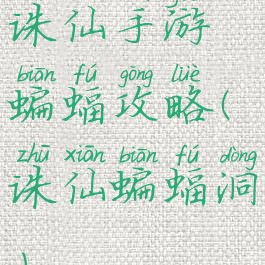 诛仙手游
biān fú gōng lüè
蝙蝠攻略(
zhū xiān biān fú dòng
诛仙蝙蝠洞
)